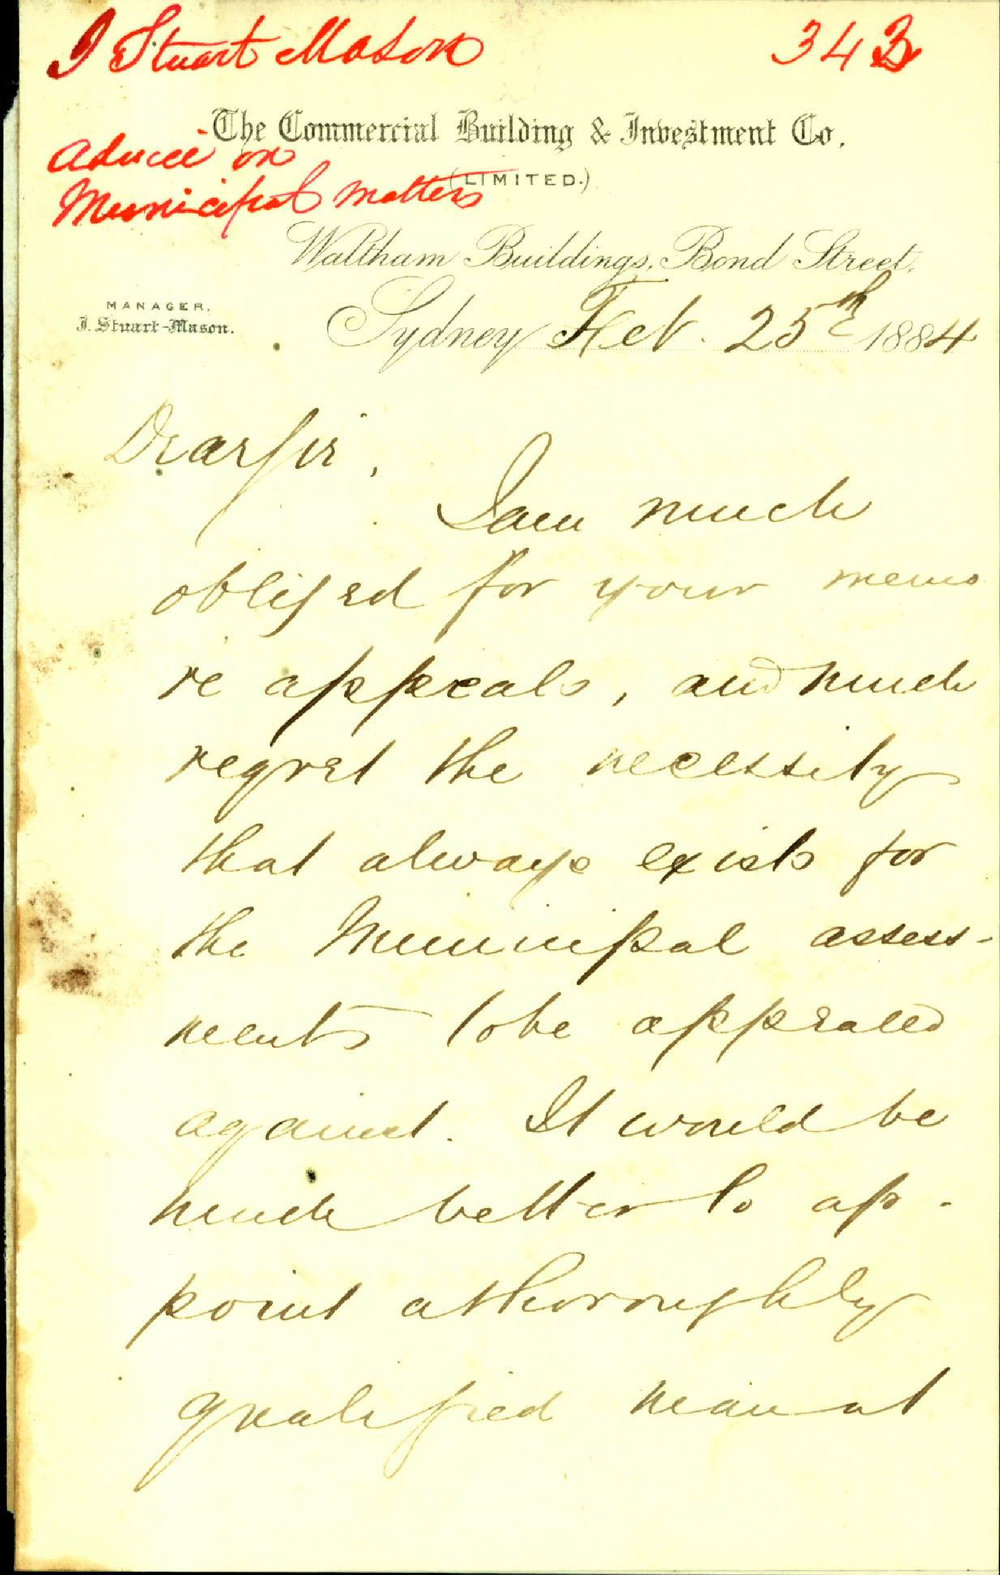 J Stuart Mason 343
The Commercial Building & Investment Co.
Advice on
(LIMITED.)
Municipal matters
Waltham Buildings, Bond Street,
MANAGER,
J. Stuart-Mason.
Sydney Feb. 25th 1884
Dear Sir,
I am much
obliged for your memo
re appeals, and much
regret the necessity
that always exists for
the Municipal assess-
ments to be appealed
against. It would be
much better to ap-
point a thoroughly
qualified man at